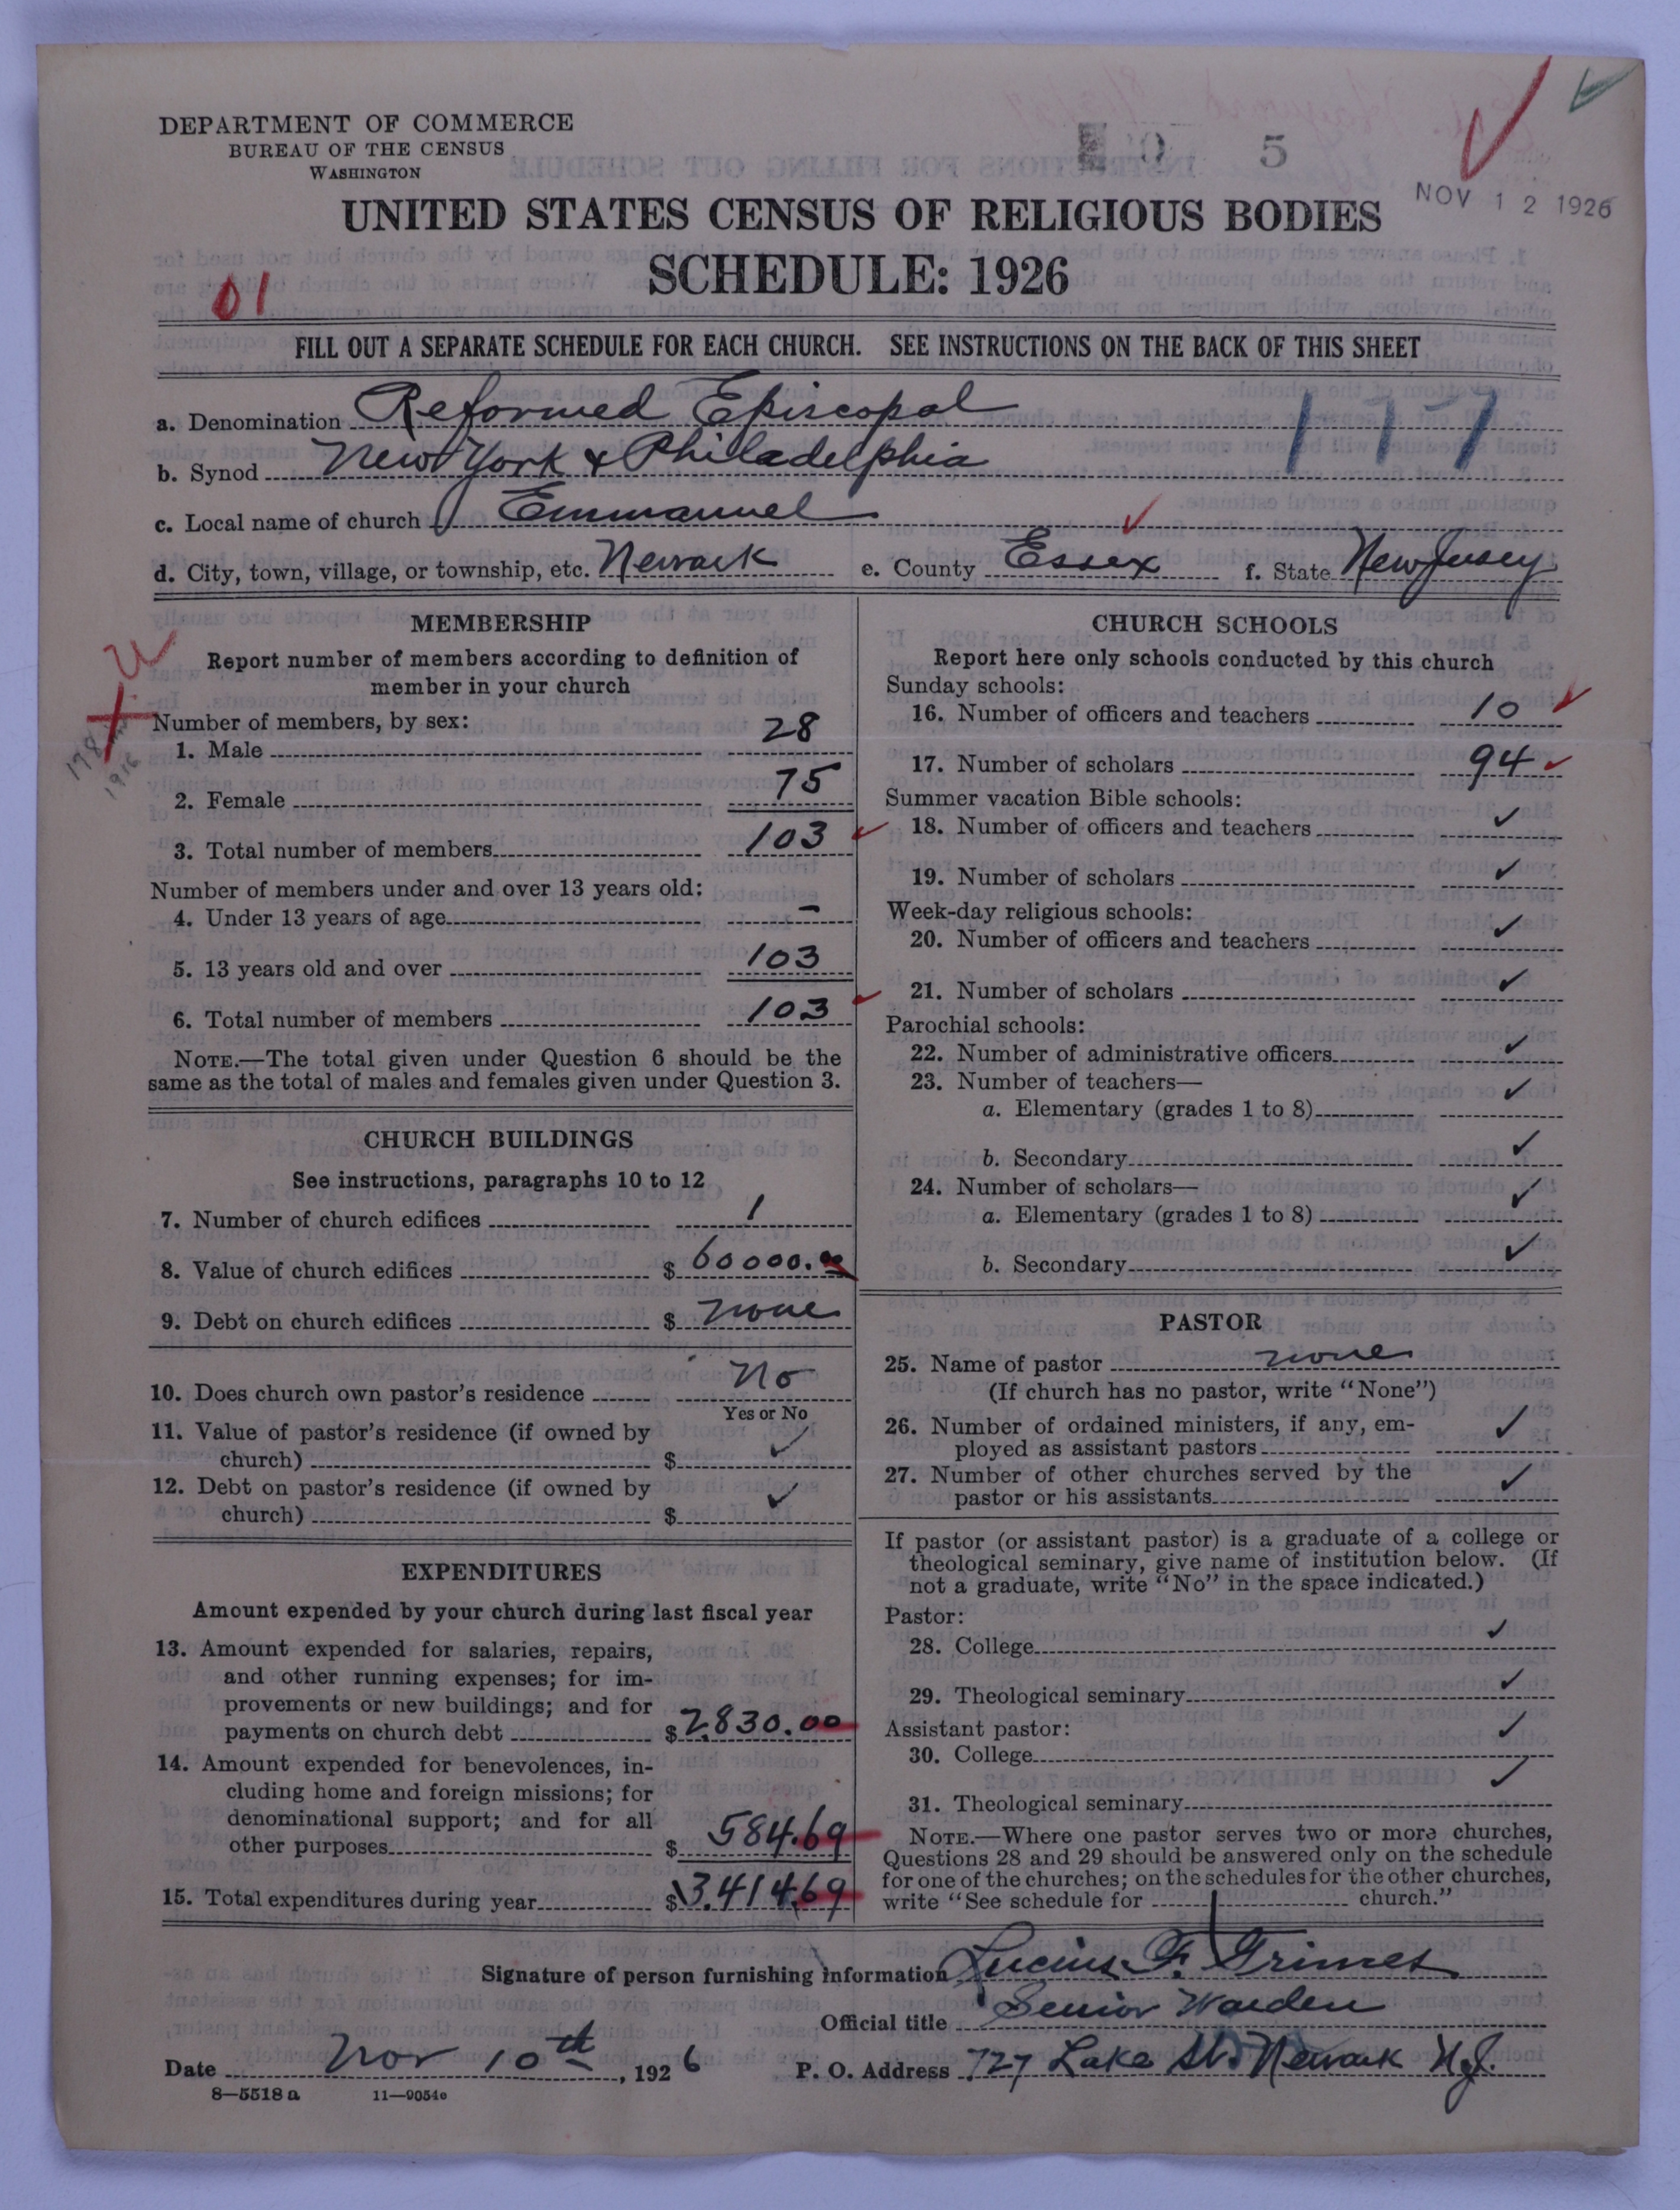 DEPARTMENT OF COMMERCE
BUREAU OF THE CENSUS
WASHINGTON
5
NOV 12 1926
UNITED STATES CENSUS OF RELIGIOUS BODIES
SCHEDULE: 1926
01
FILL OUT A SEPARATE SCHEDULE FOR EACH CHURCH. SEE INSTRUCTIONS ON THE BACK OF THIS SHEET
a. Denomination Reformed Episcopal
177
b. Synod New York & Philadelphia
c. Local name of church Emmanuel
d. City, town, village, or township, etc. Newark e. County Essex f. State New Jersey
MEMBERSHIP
Report number of members according to definition of
member in your church
Number of members, by sex:
1. Male 28
2. Female 75
3. Total number of members 103
Number of members under and over 13 years old:
4. Under 13 years of age –
5. 13 years old and over 103
6. Total number of members 103
NOTE.—The total given under Question 6 should be the
same as the total of males and females given under Question 3.
CHURCH BUILDINGS
See instructions, paragraphs 10 to 12
7. Number of church edifices 1
8. Value of church edifices $ 60000.00
9. Debt on church edifices $ none
10. Does church own pastor's residence No
Yes or No
11. Value of pastor's residence (if owned by
church) $ ✓
12. Debt on pastor's residence (if owned by
church) $ ✓
EXPENDITURES
Amount expended by your church during last fiscal year
13. Amount expended for salaries, repairs,
and other running expenses; for im-
provements or new buildings; and for
payments on church debt $ 2,830.00
14. Amount expended for benevolences, in-
cluding home and foreign missions; for
denominational support; and for all
other purposes $ 584.69
15. Total expenditures during year $ 3,414.69
CHURCH SCHOOLS
Report here only schools conducted by this church
Sunday schools:
16. Number of officers and teachers 10 ✓
17. Number of scholars 94 ✓
Summer vacation Bible schools:
18. Number of officers and teachers ✓
19. Number of scholars ✓
Week-day religious schools:
20. Number of officers and teachers ✓
21. Number of scholars ✓
Parochial schools:
22. Number of administrative officers ✓
23. Number of teachers—
a. Elementary (grades 1 to 8) ✓
b. Secondary ✓
24. Number of scholars—
a. Elementary (grades 1 to 8) ✓
b. Secondary ✓
PASTOR
25. Name of pastor none
(If church has no pastor, write "None")
26. Number of ordained ministers, if any, em-
ployed as assistant pastors ✓
27. Number of other churches served by the
pastor or his assistants ✓
If pastor (or assistant pastor) is a graduate of a college or
theological seminary, give name of institution below. (If
not a graduate, write "No" in the space indicated.)
Pastor:
28. College ✓
29. Theological seminary ✓
Assistant pastor:
30. College ✓
31. Theological seminary ✓
NOTE.—Where one pastor serves two or more churches,
Questions 28 and 29 should be answered only on the schedule
for one of the churches; on the schedules for the other churches,
write "See schedule for church."
Signature of person furnishing information Lucius F. Grimes
Official title Senior Warden
Date Nov 10th, 1926 P. O. Address 727 Lake St. Newark N.J.
8—5518 a 11—9054c